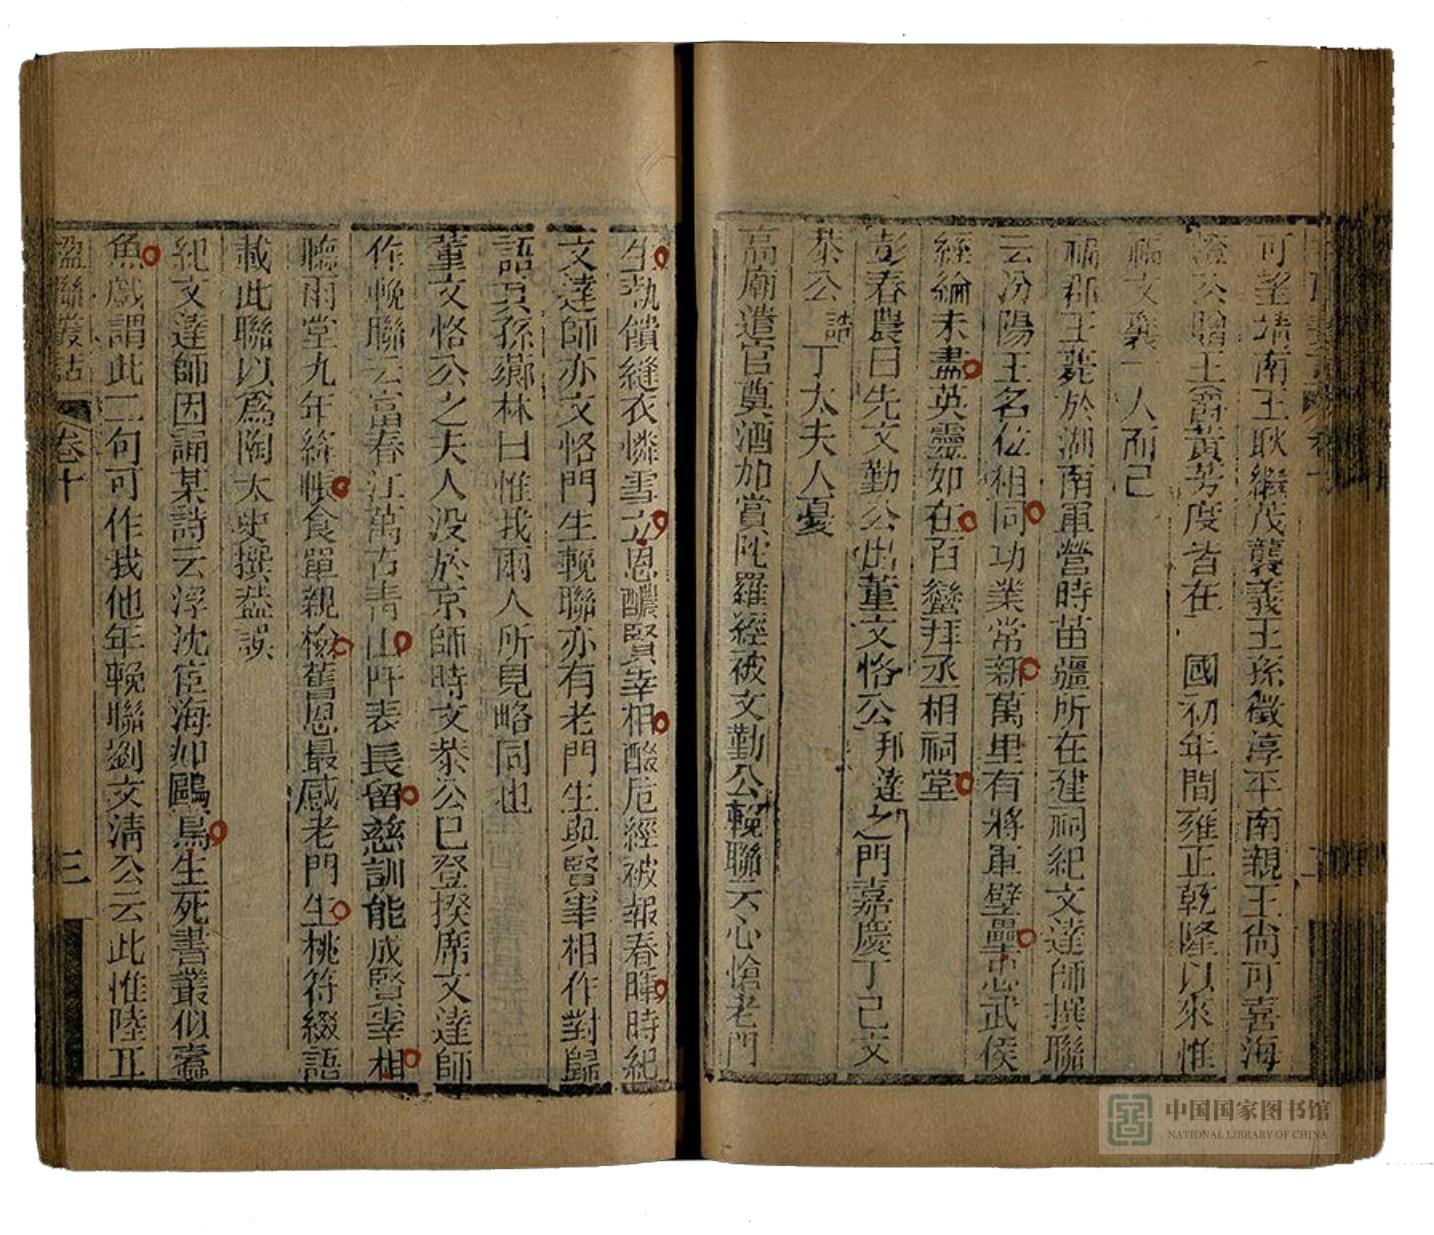 可望靖南王耿繼茂襲義王孫徵淳平南親王尚可喜海
澄公贈王爵黃芳度皆在 國初年間雍正乾隆以來惟
福文襄一人而已
福郡王薨於湖南軍營時苗疆所在建祠紀文達師撰聯
云汾陽王名位相同功業常新萬里有將軍壁壘忠武侯
經綸未盡英靈如在百蠻拜丞相祠堂
彭春農曰先文勤公出董文恪公邦達之門嘉慶丁己文
恭公誥丁太夫人憂
高廟遣官奠酒加賞陀羅經被文勤公輓聯云心愴老門
生執饋縫衣憐雪立恩醲賢宰相酸卮經被報春暉時紀
文達師亦文恪門生輓聯亦有老門生與賢宰相作對歸
語員孫薌林曰惟我兩人所見略同也
董文恪公之夫人没於京師時文恭公已登揆席文達師
作輓聯云富春江萬古青山阡表長留慈訓能成賢宰相
聽雨堂九年絳帳食單親檢舊恩最感老門生桃符綴語
載此聯以爲陶太史撰葢誤
紀文達師因誦某詩云浮沈宦海如鷗鳥生死書叢似蠹
魚戲謂此二句可作我他年輓聯劉文清公云此惟陸耳
楹聯叢話
卷十
三
中国国家图书馆
NATIONAL LIBRARY OF CHINA